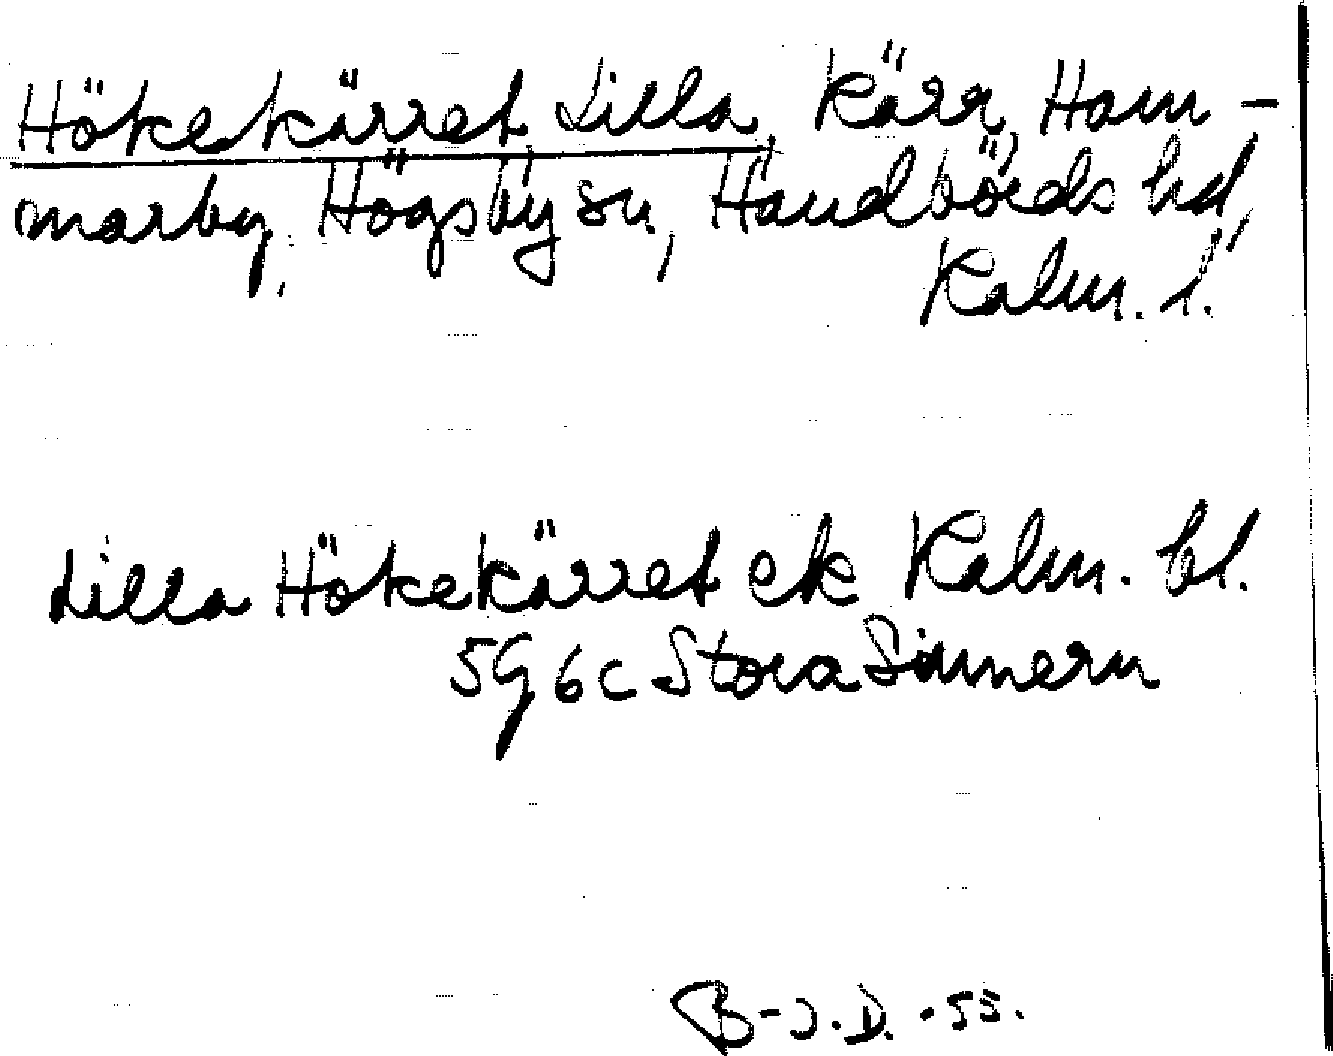 Hökekärret, Lilla, kärr, Ham-
marby, Högsby sn, Handbörds hd,
Kalm. l.
Lilla Hökekärret ek Kalm. bl.
5G 6c Stora Sinnern
B-J.D. -55.